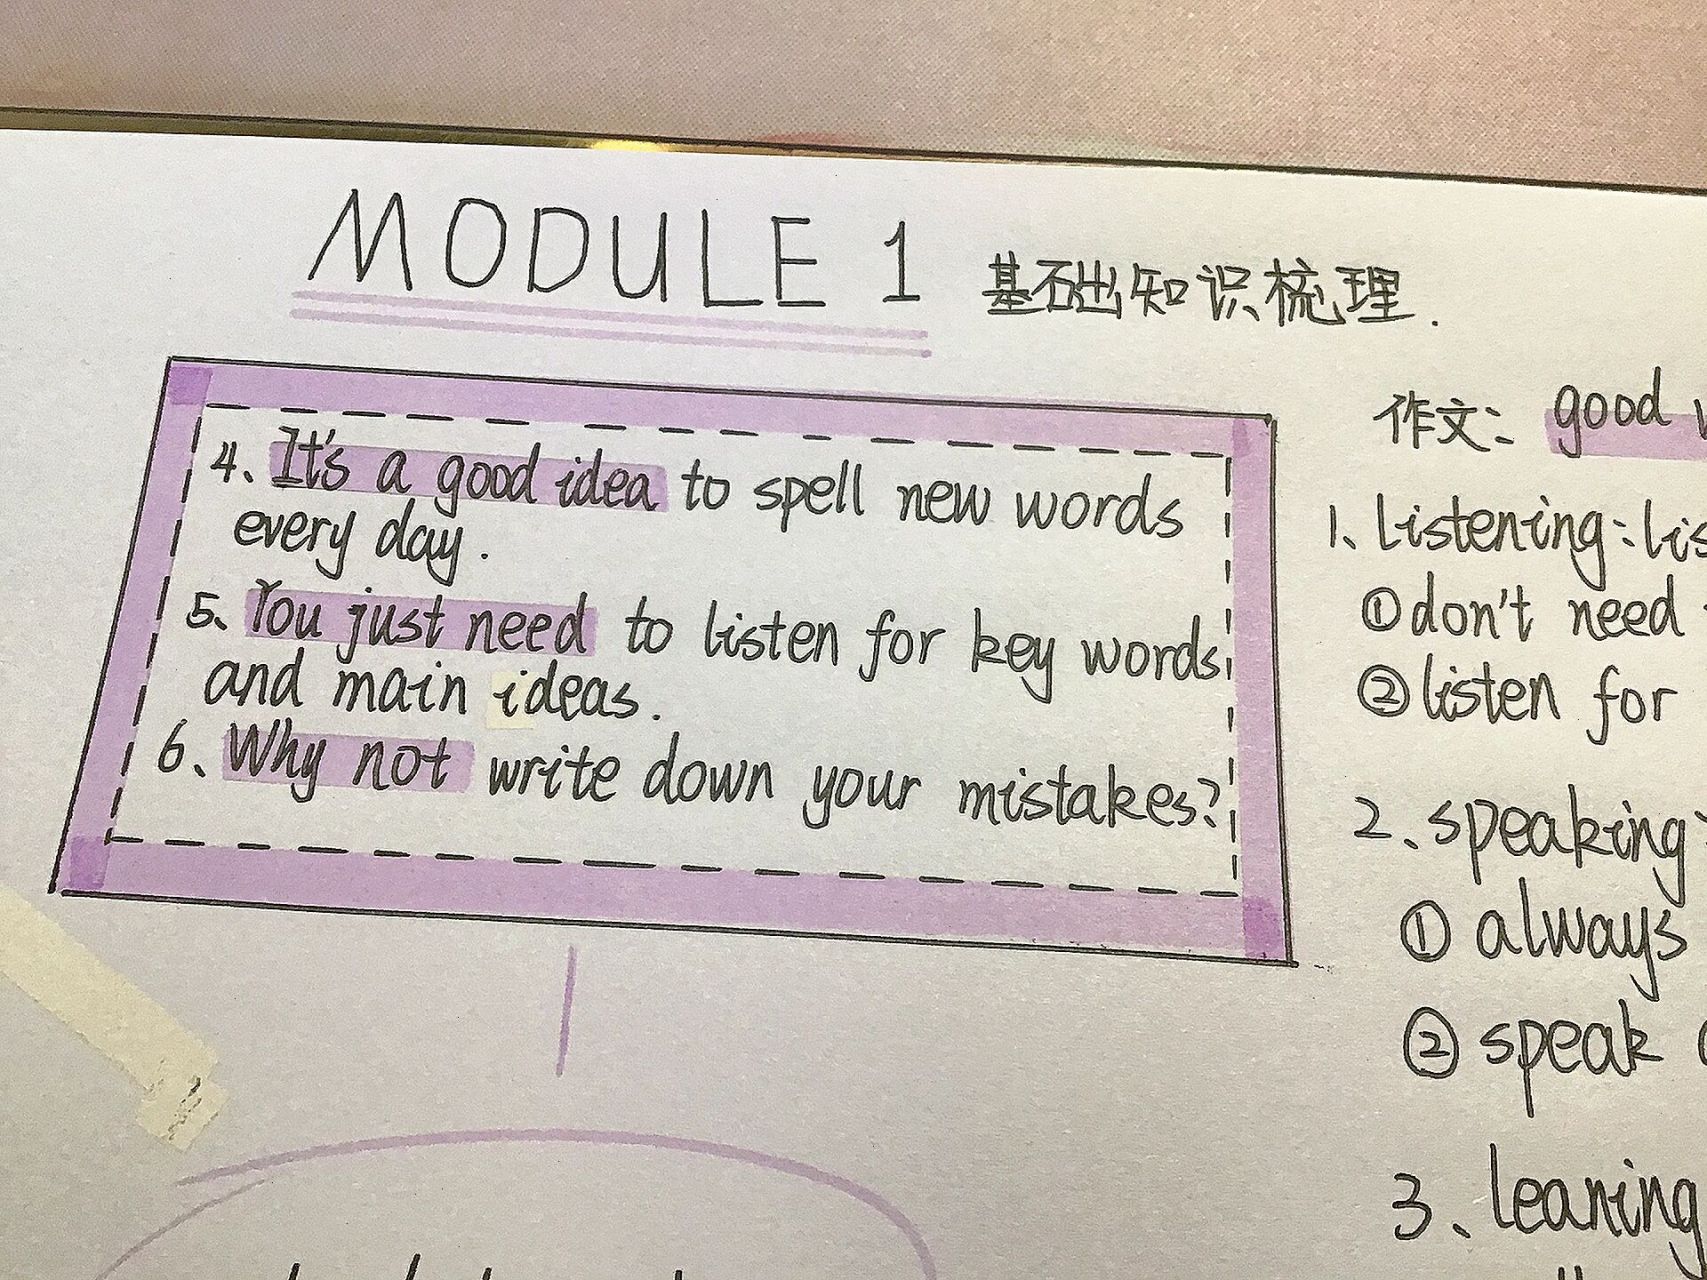 MODULE 1 基础知识梳理.
4、It's a good idea to spell new words
every day.
5、You just need to listen for key words
and main ideas.
6、Why not write down your mistakes?
作文: good
1、Listening: lis
①don't need
②listen for
2、speaking:
① always
② speak
3、leaning